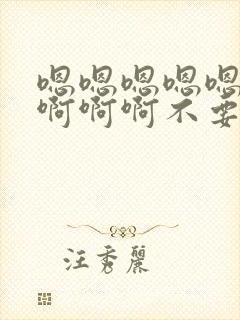 嗯嗯嗯嗯嗯
啊啊啊不要
汪秀丽